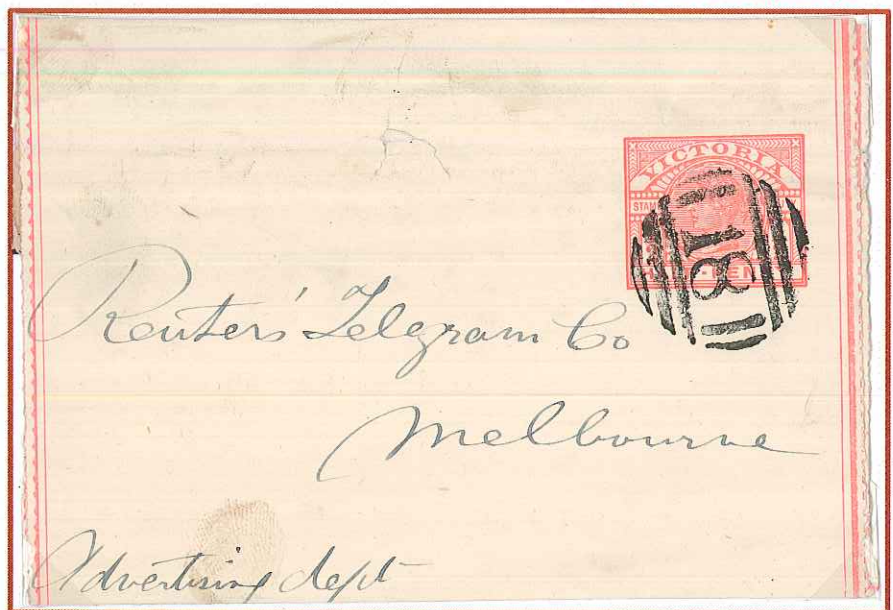 VICTORIA
STAM
181
Reuter's Telegram Co
Melbourne
Advertising dept